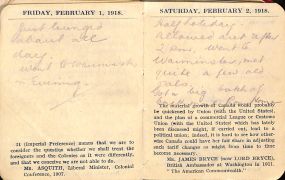 FRIDAY, FEBRUARY 1, 1918.
Just lounged
about all
day.
went to Warminster
Evening
21 (Imperial Preference) means that we are to
consider the question whether we shall treat the
foreigners and the Colonies as it were differently,
and that we conceive we are not able to do.
Mr. ASQUITH, Liberal Minister, Colonial
Conference, 1907.
SATURDAY, FEBRUARY 2, 1918.
Half holiday.
allowed out after
2 pm. Went to
Warminster, met
quite a few old
pals.
Got a big batch of
The material growth of Canada would probably
be quickened by Union (with the United States)
and the plan of a commercial League or Customs
Union (with the United States) which has lately
been discussed might, if carried out, lead to a
political union; indeed, it is hard to see how other-
wise Canada could have her fair share in adjusting
such tariff changes as might from time to time
become necessary.
Mr. JAMES BRYCE (now LORD BRYCE),
British Ambassador at Washington in 1911.
"The American Commonwealth."